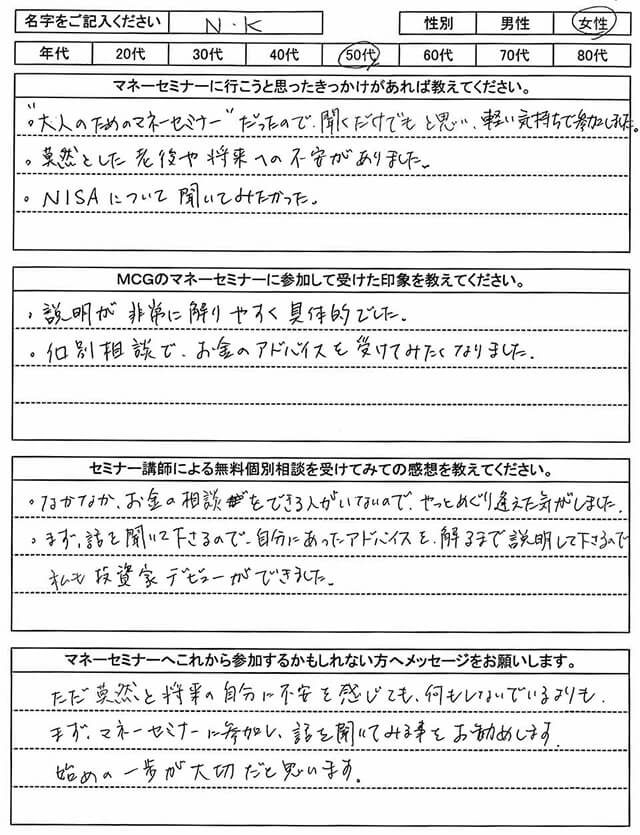 名字をご記入ください N・K 性別 男性 女性
年代 20代 30代 40代 50代 60代 70代 80代
マネーセミナーに行こうと思ったきっかけがあれば教えてください。
。"大人のためのマネーセミナー"だったので、聞くだけでもと思い、軽い気持ちで参加しました。
。莫然とした老後や将来への不安がありました。
。NISAについて聞いてみたかった。
MCGのマネーセミナーに参加して受けた印象を教えてください。
。説明が非常に解りやすく具体的でした。
。個別相談で、お金のアドバイスを受けてみたくなりました。
セミナー講師による無料個別相談を受けてみての感想を教えてください。
。なかなか、お金の相談をできる人がいないので、やっとめぐり逢えた気がしました。
。まず、話を聞いて下さるので、自分にあったアドバイスを、解るまで説明して下さるので
私も投資家デビューができました。
マネーセミナーへこれから参加するかもしれない方へメッセージをお願いします。
ただ莫然と将来の自分に不安を感じても、何もしないでいるよりも、
まず、マネーセミナーに参加し、話を聞いてみる事をお勧めします。
始めの一歩が大切だと思います。